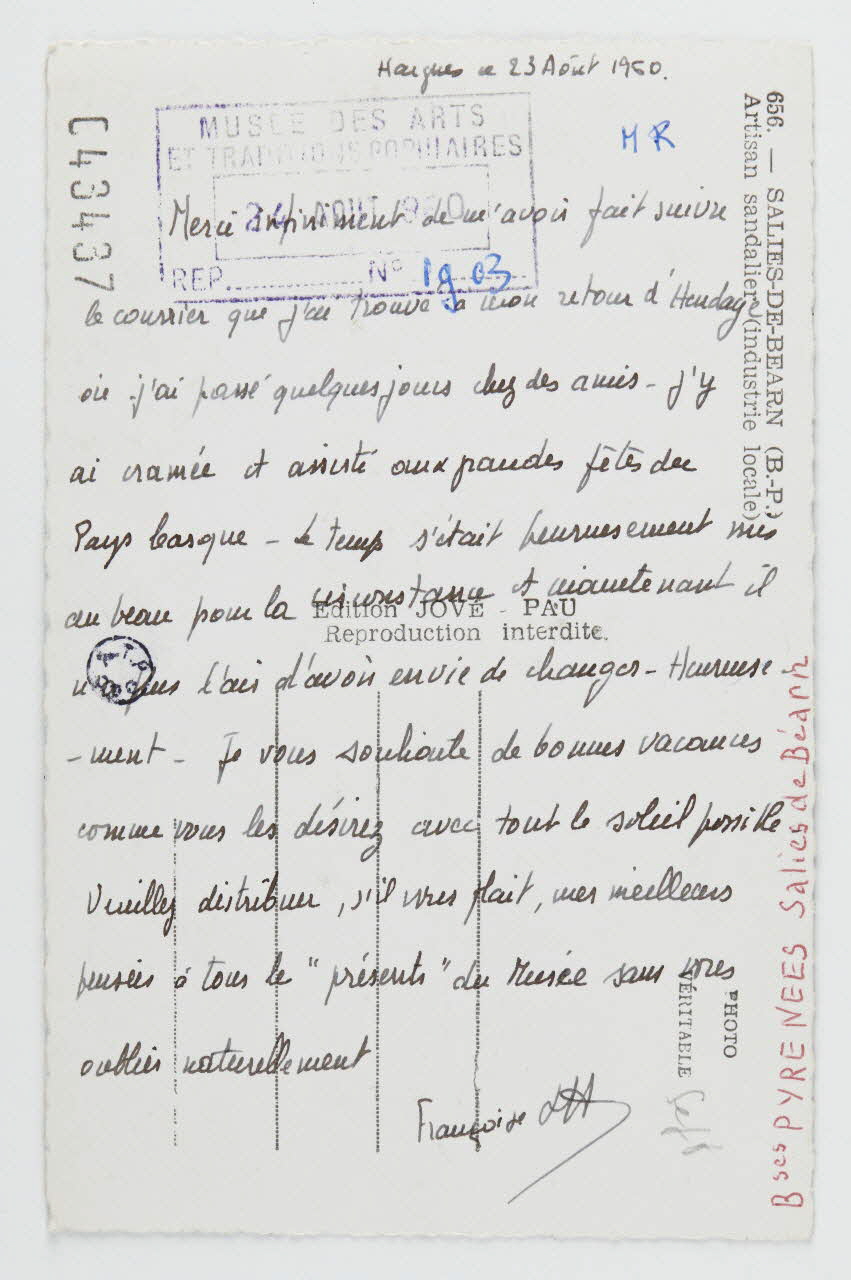 le 23 Août 1960.
MUSEE DES ARTS
ET TRADITIONS POPULAIRES
24 AOUT 1960
REP. N° 1903
MR
C43437
Merci infiniment de m'avoir fait suivre
le courrier que j'ai trouvé à mon retour d'Hendaye
où j'ai passé quelques jours chez des amis - j'y
ai et assisté aux grandes fêtes du
Pays basque - Le temps s'était heureusement mis
au beau pour la circonstance et maintenant il
n'a pas l'air d'avoir envie de changer - Heureuse-
-ment - Je vous souhaite de bonnes vacances
comme vous les désirez avec tout le soleil possible
Veuillez distribuer, s'il vous plait, mes meilleures
pensées à tous les "présents" du Musée sans vous
oublier naturellement
Françoise
656. — SALIES-DE-BEARN (B.-P.)
Artisan sandalier (industrie locale)
Edition JOVÉ - PAU
Reproduction interdite.
A.T.P.
PHOTO
VÉRITABLE
Bses PYRENEES Salies de Béarn